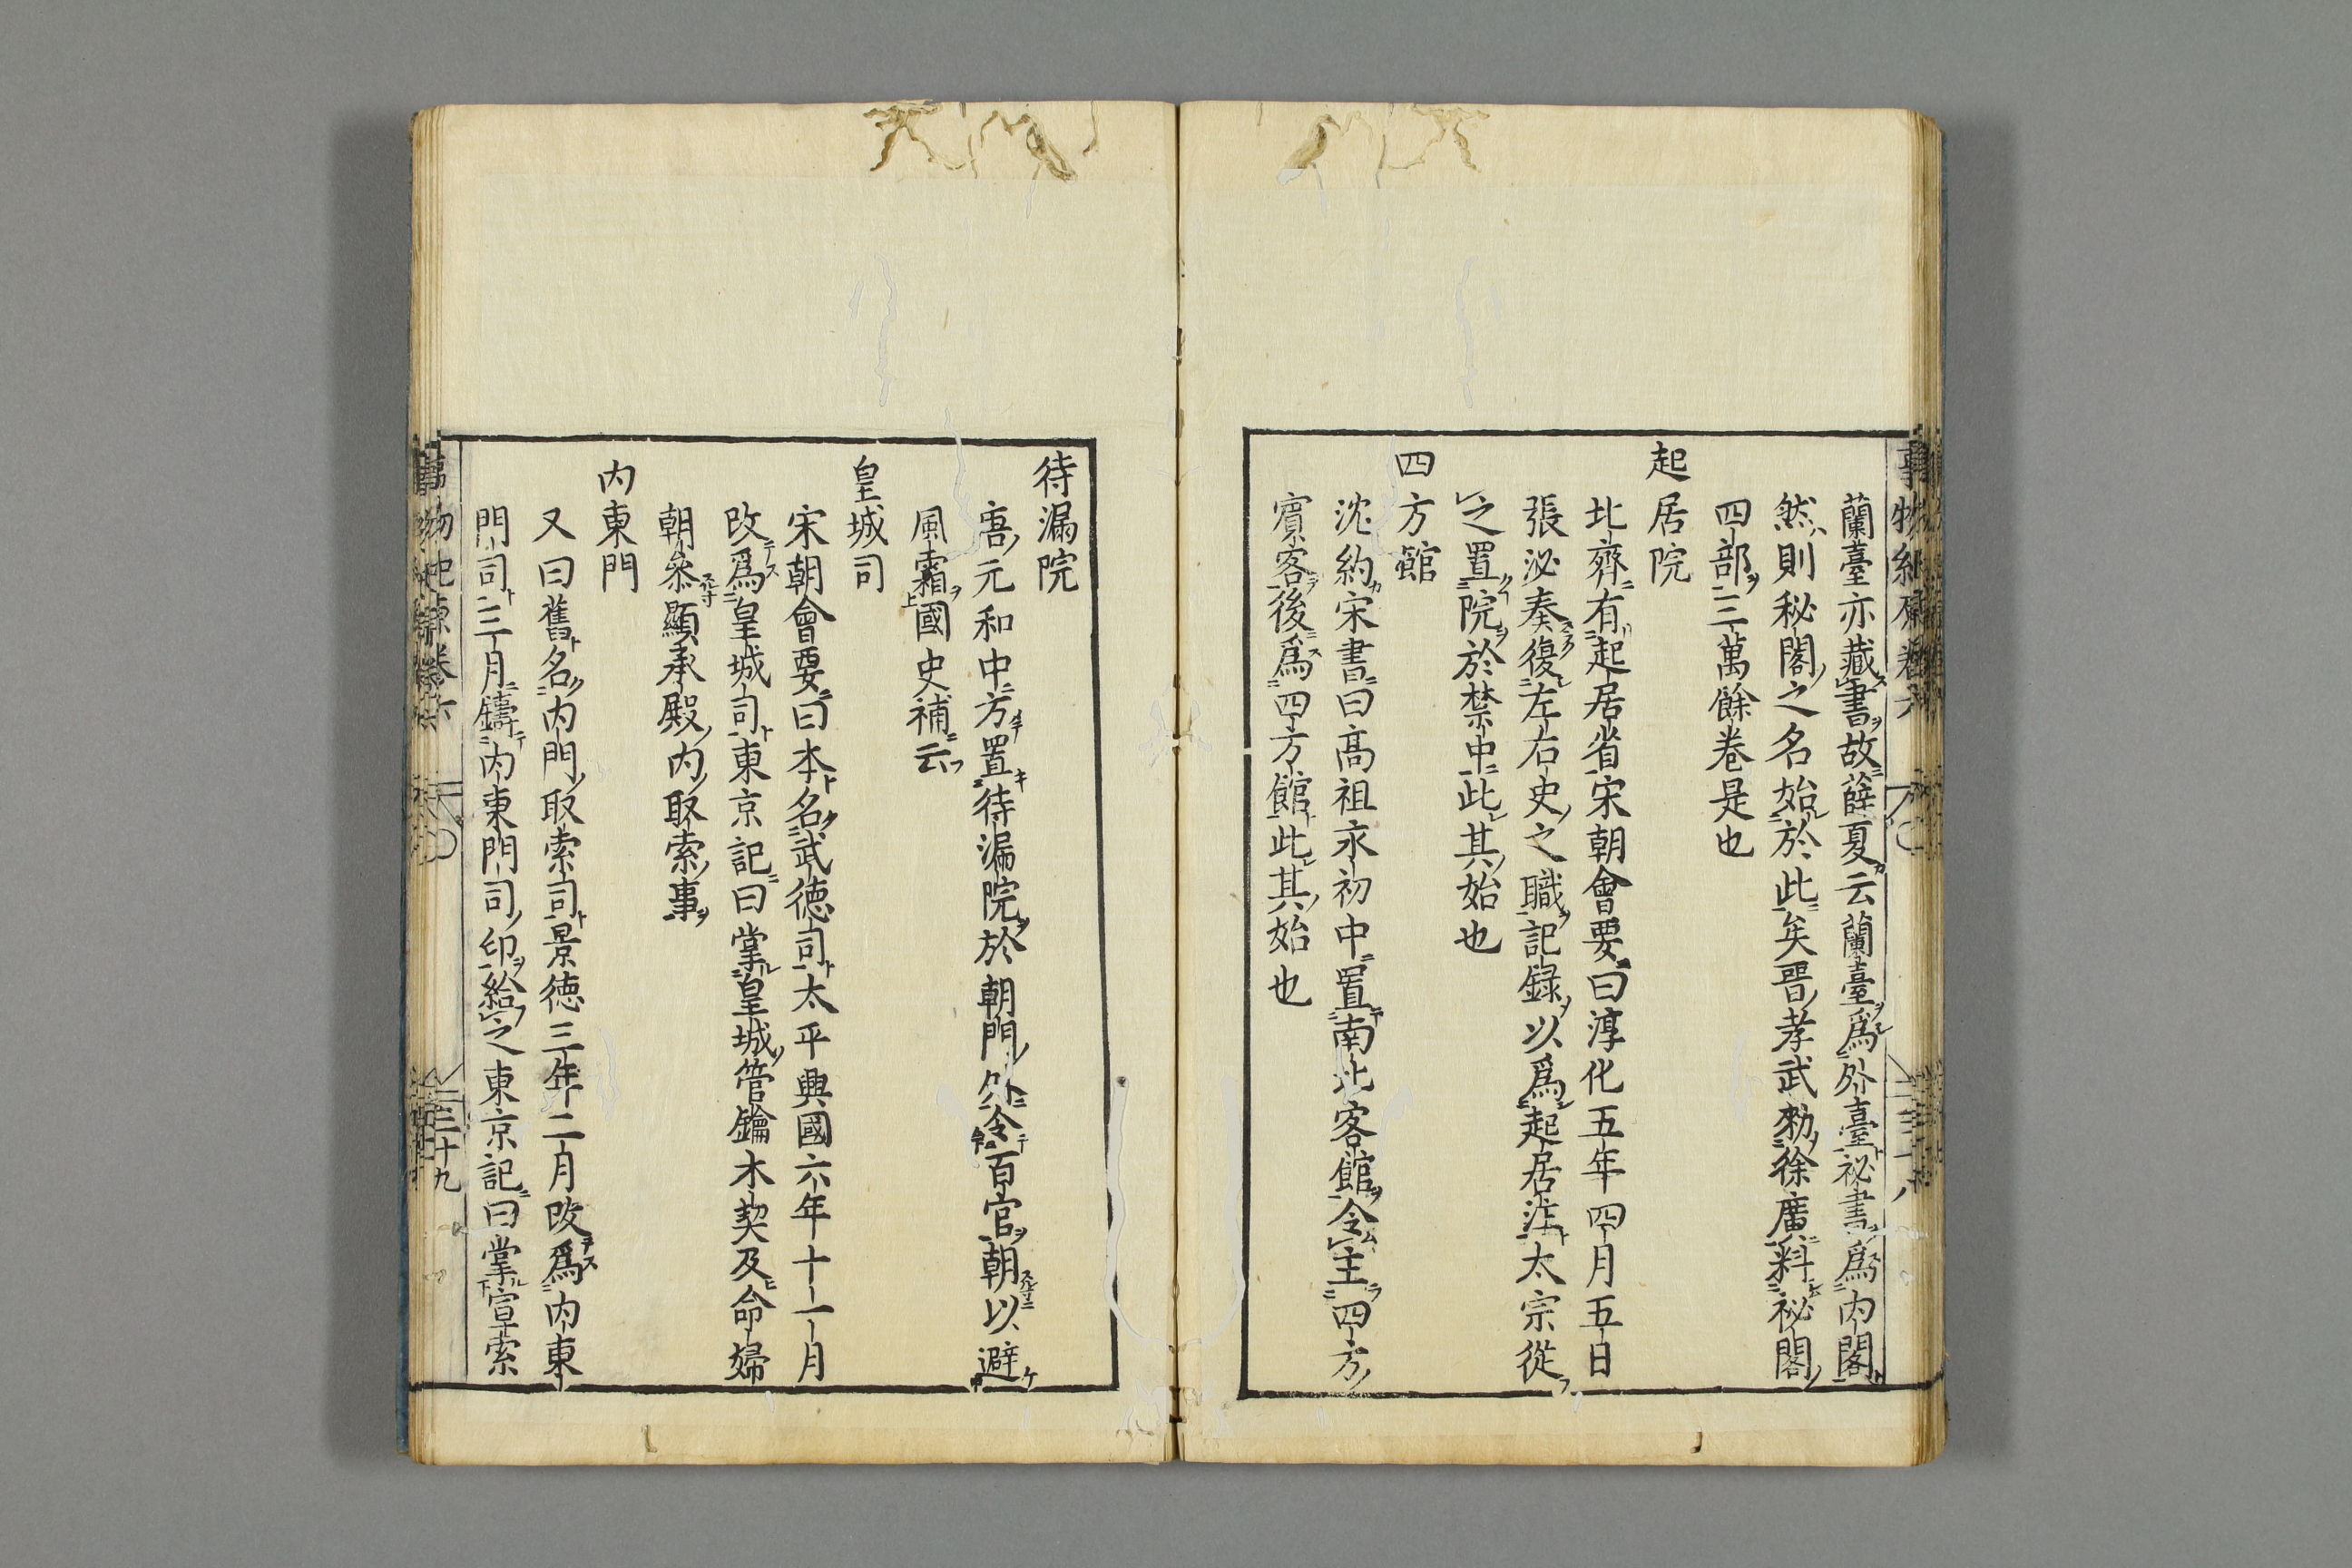 蘭臺亦藏書故薛夏云蘭臺爲外臺祕書爲内閣
然則秘閣之名始於此矣晋孝武勑徐廣料祕閣
四部三萬餘卷是也
起居院
北齊有起居省宋朝會要曰淳化五年四月五日
張泌奏復左右史之職記録以爲起居注太宗從
之置院於禁中此其始也
四方館
沈約宋書曰髙祖永初中置南北客館令主四方
賓客後爲四方館此其始也
待漏院
唐元和中方置待漏院於朝門外令百官朝以避
風霜國史補云
皇城司
宋朝會要曰本名武德司太平興國六年十一月
改爲皇城司東京記曰掌皇城管鑰木契及命婦
朝叅顯承殿内取索事
内東門
又曰舊名内門取索司景徳三年二月改爲内東
門司三月鑄内東門司印給之東京記曰掌宣索
三十九